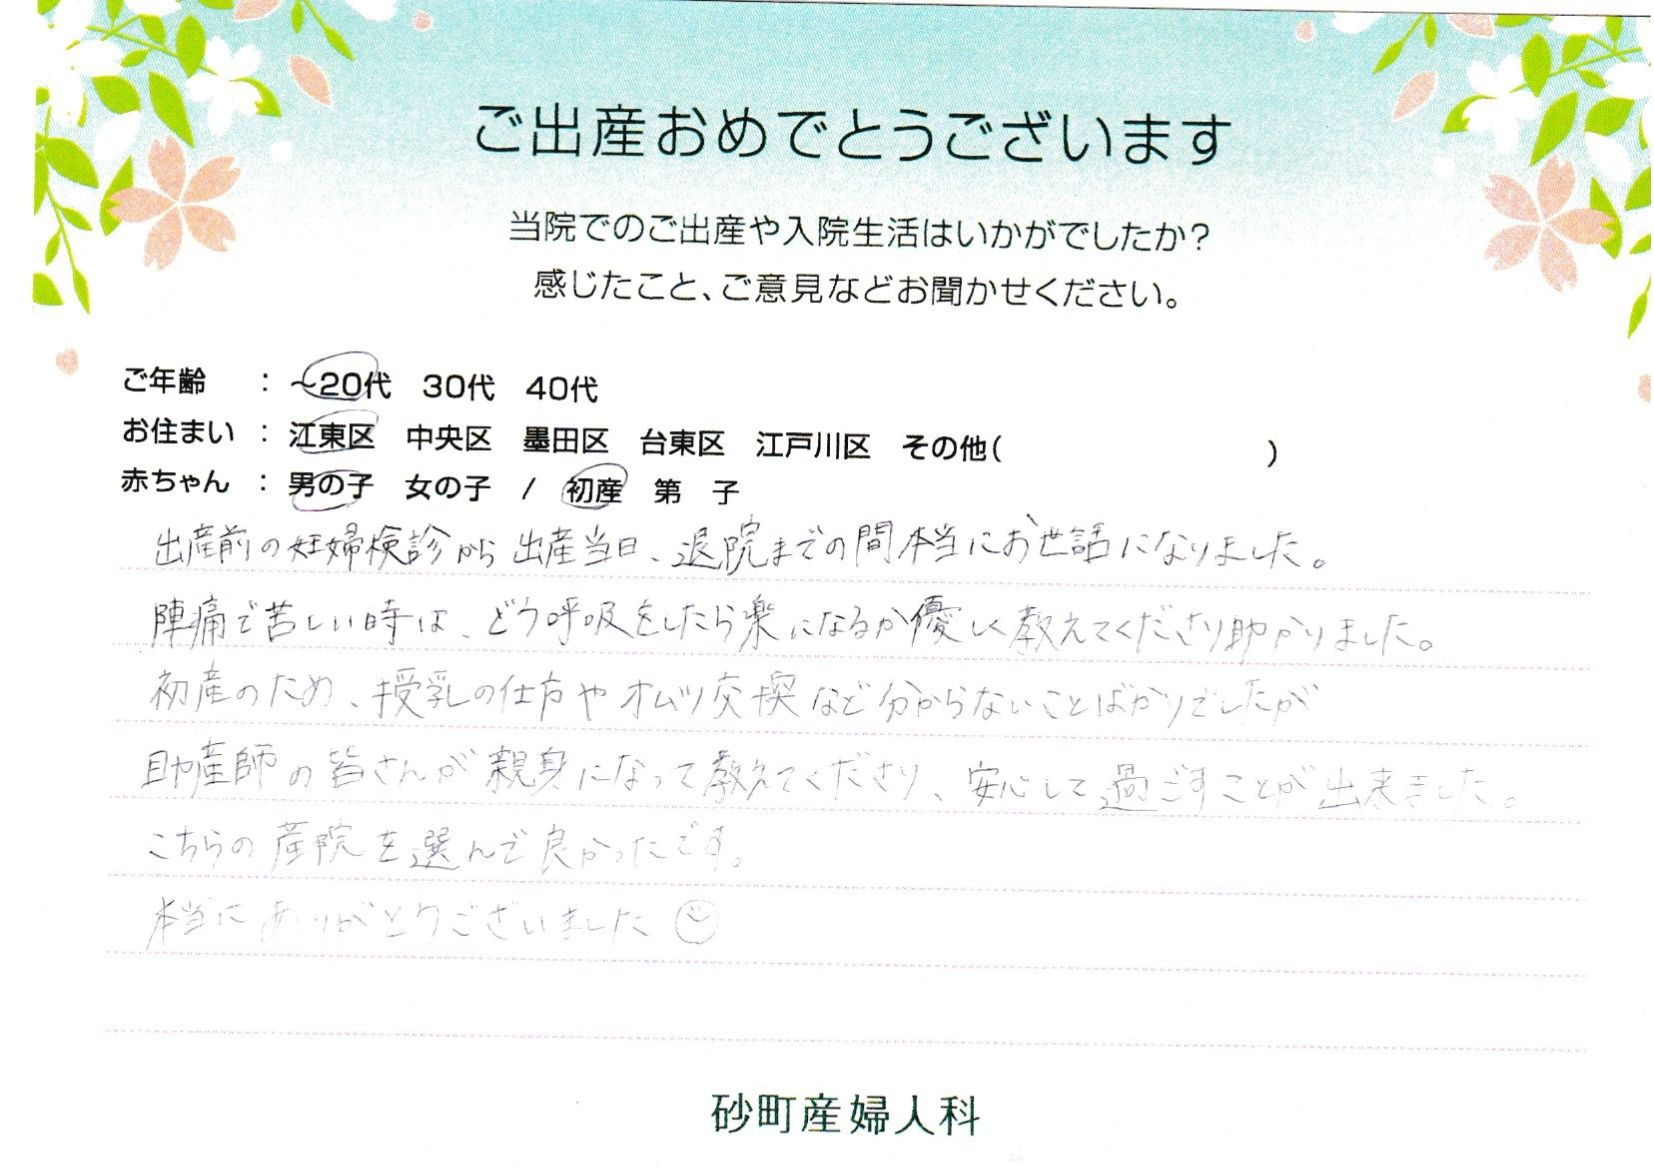 ご出産おめでとうございます
当院でのご出産や入院生活はいかがでしたか?
感じたこと、ご意見などお聞かせください。
ご年齢 : ~20代 30代 40代
お住まい : 江東区 中央区 墨田区 台東区 江戸川区 その他( )
赤ちゃん : 男の子 女の子 / 初産 第 子
出産前の妊婦検診から出産当日、退院までの間本当にお世話になりました。
陣痛で苦しい時は、どう呼吸をしたら楽になるか優しく教えてくださり助かりました。
初産のため、授乳の仕方やオムツ交換など分からないことばかりでしたが
助産師の皆さんが親身になって教えてくださり、安心して過ごすことが出来ました。
こちらの産院を選んで良かったです。
本当にありがとうございました
砂町産婦人科